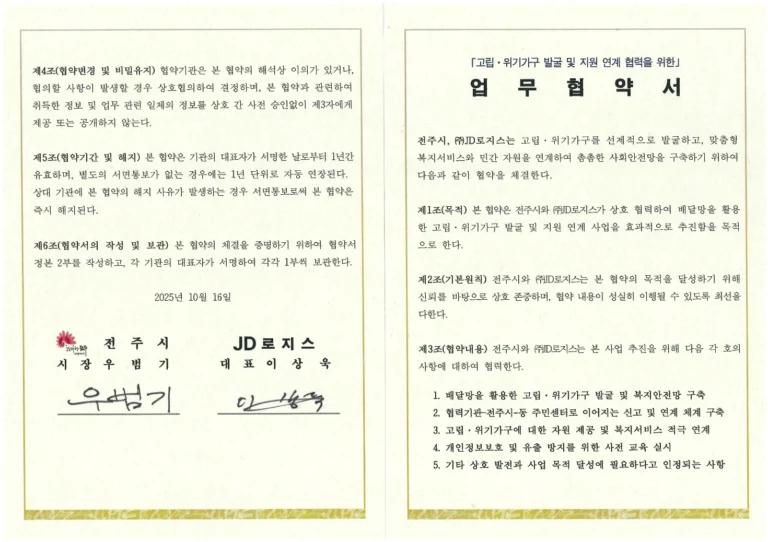 「고립·위기가구 발굴 및 지원 연계 협력을 위한」
업 무 협 약 서
전주시, ㈜JD로지스는 고립·위기가구를 선제적으로 발굴하고, 맞춤형
복지서비스와 민간 자원을 연계하여 촘촘한 사회안전망을 구축하기 위하여
다음과 같이 협약을 체결한다.
제1조(목적) 본 협약은 전주시와 ㈜JD로지스가 상호 협력하여 배달망을 활용
한 고립·위기가구 발굴 및 지원 연계 사업을 효과적으로 추진함을 목적
으로 한다.
제2조(기본원칙) 전주시와 ㈜JD로지스는 본 협약의 목적을 달성하기 위해
신뢰를 바탕으로 상호 존중하며, 협약 내용이 성실히 이행될 수 있도록 최선을
다한다.
제3조(협약내용) 전주시와 ㈜JD로지스는 본 사업 추진을 위해 다음 각 호의
사항에 대하여 협력한다.
1. 배달망을 활용한 고립·위기가구 발굴 및 복지안전망 구축
2. 협력기관-전주시-동 주민센터로 이어지는 신고 및 연계 체계 구축
3. 고립·위기가구에 대한 자원 제공 및 복지서비스 적극 연계
4. 개인정보보호 및 유출 방지를 위한 사전 교육 실시
5. 기타 상호 발전과 사업 목적 달성에 필요하다고 인정되는 사항
제4조(협약변경 및 비밀유지) 협약기관은 본 협약의 해석상 이의가 있거나,
협의할 사항이 발생할 경우 상호협의하여 결정하며, 본 협약과 관련하여
취득한 정보 및 업무 관련 일체의 정보를 상호 간 사전 승인없이 제3자에게
제공 또는 공개하지 않는다.
제5조(협약기간 및 해지) 본 협약은 기관의 대표자가 서명한 날로부터 1년간
유효하며, 별도의 서면통보가 없는 경우에는 1년 단위로 자동 연장된다.
상대 기관에 본 협약의 해지 사유가 발생하는 경우 서면통보로써 본 협약은
즉시 해지된다.
제6조(협약서의 작성 및 보관) 본 협약의 체결을 증명하기 위하여 협약서
정본 2부를 작성하고, 각 기관의 대표자가 서명하여 각각 1부씩 보관한다.
2025년 10월 16일
전 주 시
시 장 우 범 기
우범기
JD로지스
대 표 이 상 욱